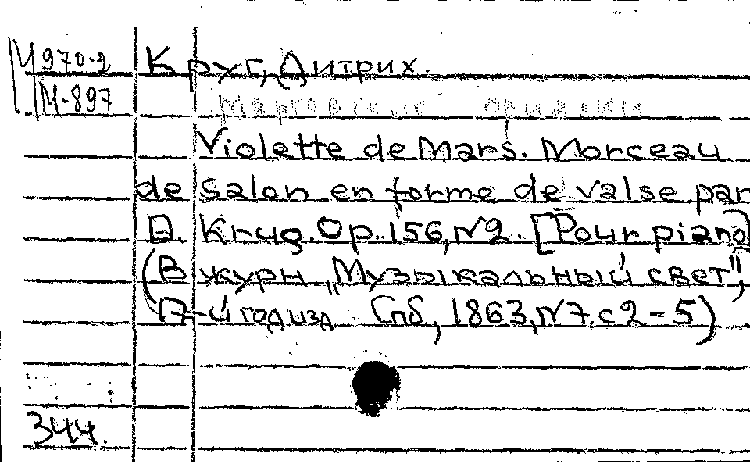 М970-2 Круг, Дитрих.
М-897
Violette de Mars. Morceau
de salon en forme de valse par
D. Krug. Op. 156, N2. [Pour piano]
(В журн. „Музыкальный свет",
17-й год изд. Спб, 1863, N7, с 2-5)
344.